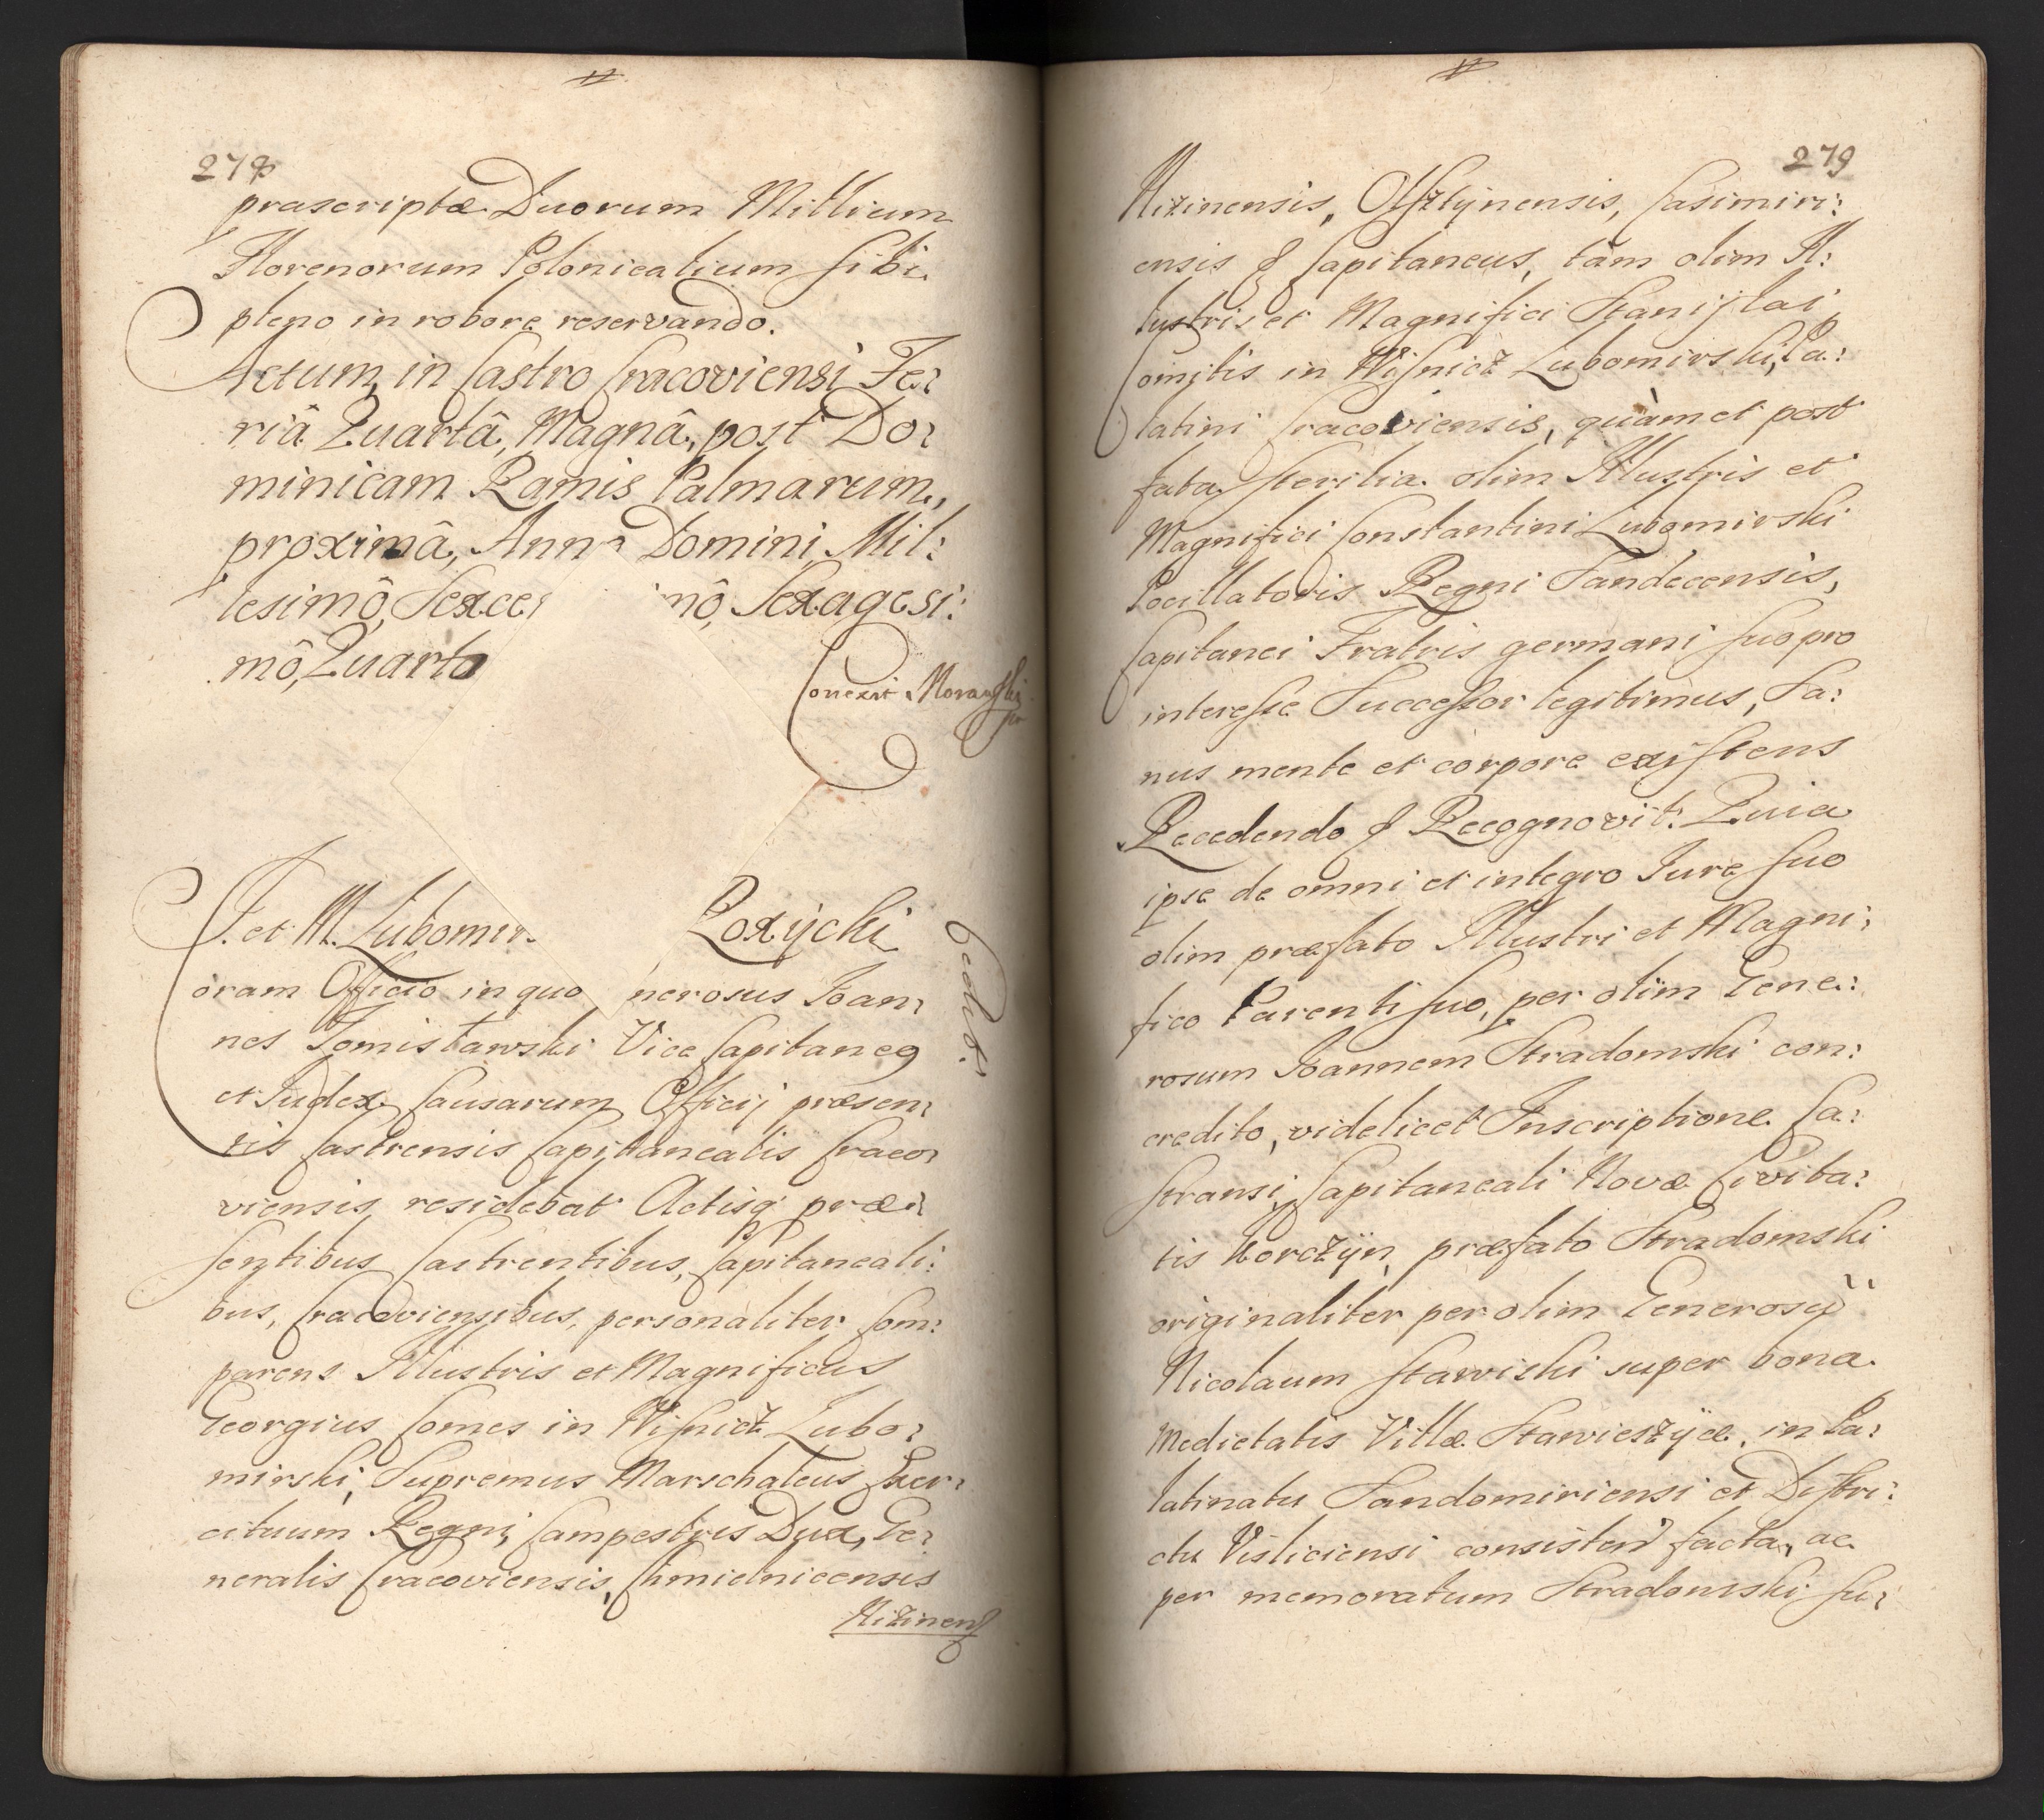 278
præscriptæ Duorum Millium
Florenorum Polonicalium sibi
pleno in robore reservando.
Actum in Castro Cracoviensi Fe:
riâ Quartâ, Magnâ, post Do:
minicam Ramis Palmarum,
proximâ, Anno Domini Mil:
lesimô, Sexcen mô, Sexagesi:
mô, Quarto
Conexit Morawski
J. et M. Lubomir Roxÿcki
Cedit.
oram Officio in quo nerosus Joan:
nes Tomisławski Vice Capitaneg
et Judex Causarum Officij præsen:
tis Castrensis Capitanealis Craco:
viensis residebat Actisq præ:
sentibus Castrentibus, Capitaneali:
bus, Cracoviensibus, personaliter Com:
parens Illustris et Magnificus
Georgius Comes in Wisnicz Lubo:
mirski, Supremus Marschalcus Exer:
cituum Regni, Campestris Dux, Ge:
neralis Cracoviensis, Chmielnicensis
Nizinens
279
Nizinensis, Olsztÿnensis, Casimiri:
ensis & Capitaneus, tàm olim Il:
lustris et Magnifici Stanislai
Comitis in Wisnicz Lubomirski, Pa:
latini Cracoviensis, quàm et post
fata sterilia olim Illustris et
Magnifici Constantini Lubomirski
Pocillatoris Regni Sandecensis,
Capitanei Fratris germani suo pro
interesse Successor legitimus, Sa:
nus mente et corpore existens
Recedendo & Recognovit. Quia
ipse de omni et integro Jure suo
olim præfato Illustri et Magni:
fico Parenti suo, per olim Gene:
rosum Joannem Stradomski con:
credito, videlicet Inscriptione Ca:
stransi, Capitaneali Novæ Civita:
tis Korczÿn, præfato Stradomski
originaliter per olim Generosÿ
Nicolaum Stawiski super bona
Medietatis Villæ Stawieszÿce, in Pa:
latinatu Sandomiriensi et Distri:
ctu Visliciensi consisten facta, ac
per memoratum Stradomski su: